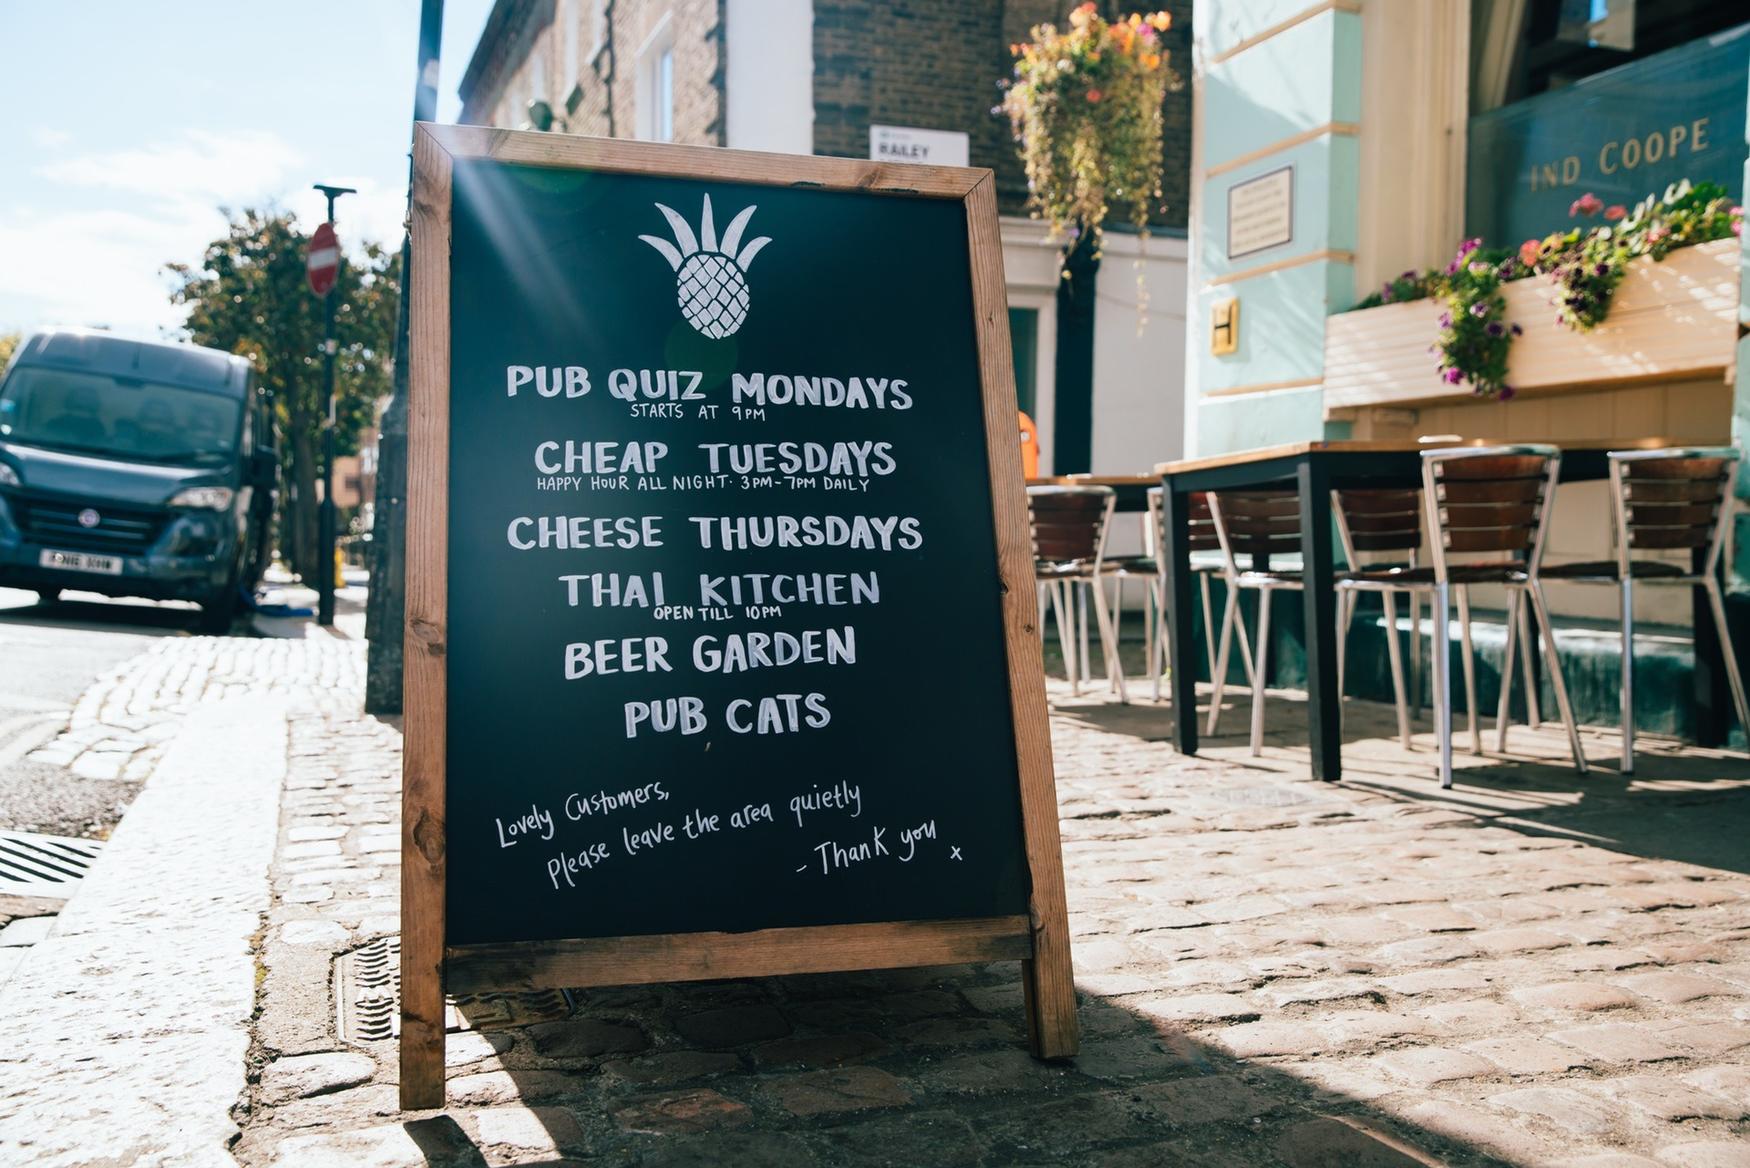 PUB QUIZ MONDAYS
STARTS AT 9PM
CHEAP TUESDAYS
HAPPY HOUR ALL NIGHT· 3PM-7PM DAILY
CHEESE THURSDAYS
THAI KITCHEN
OPEN TILL 10PM
BEER GARDEN
PUB CATS
Lovely Customers,
Please leave the area quietly
- Thank you x
BAILEY
IND COOPE
H